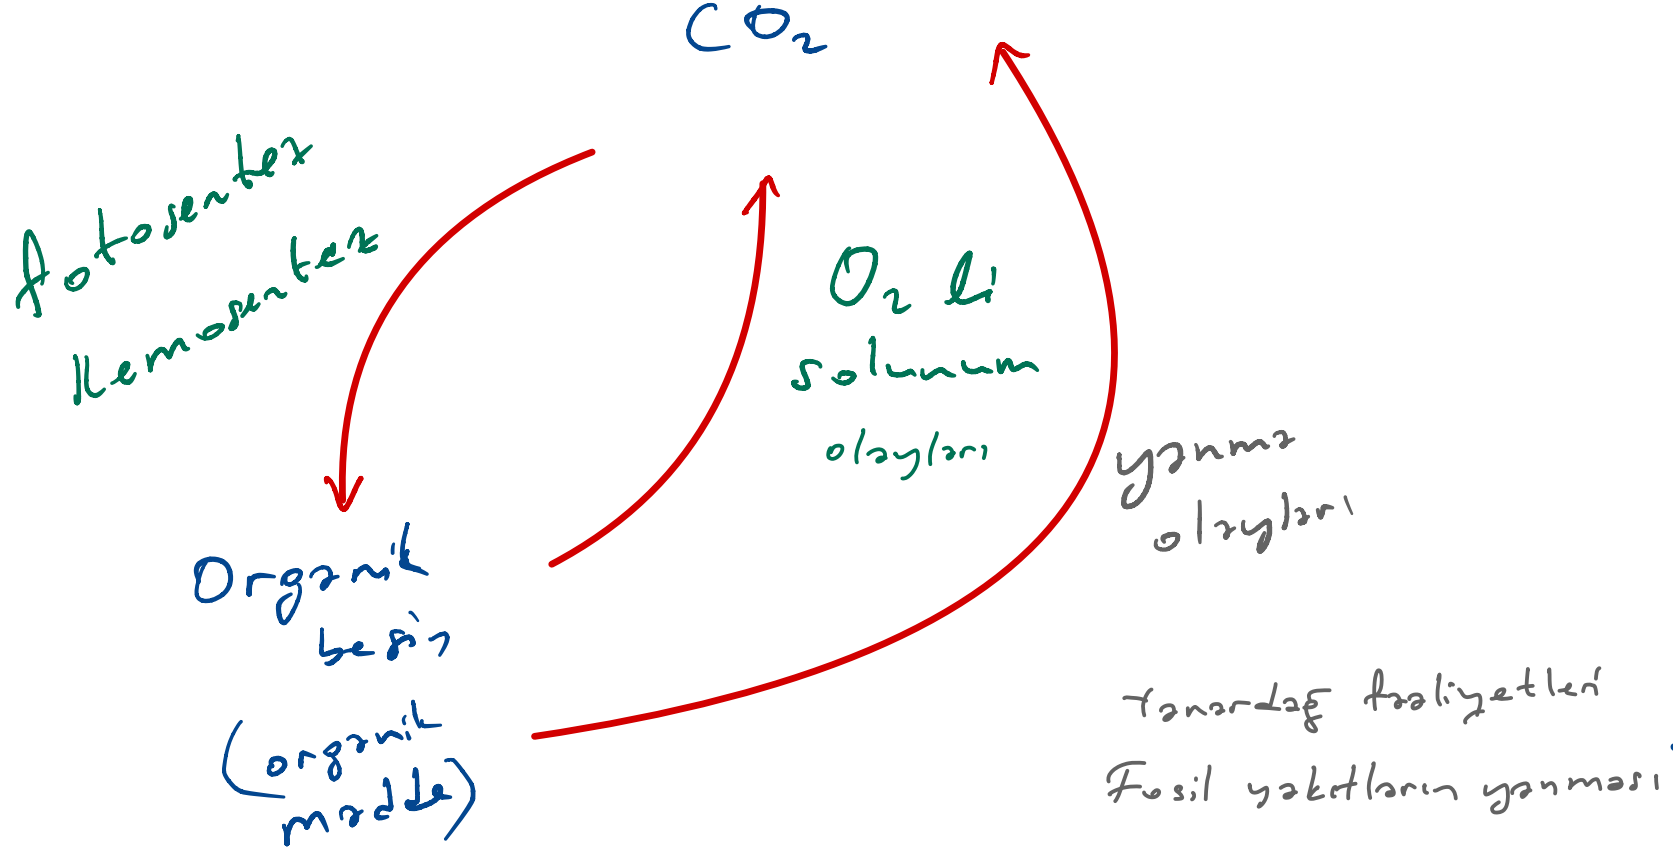 CO₂
fotosentez
Kemosentez
O₂ li
solunum
olayları
yanma
olayları
Organik
besin
(organik
madde)
Yanardağ faaliyetleri
Fosil yakıtların yanması